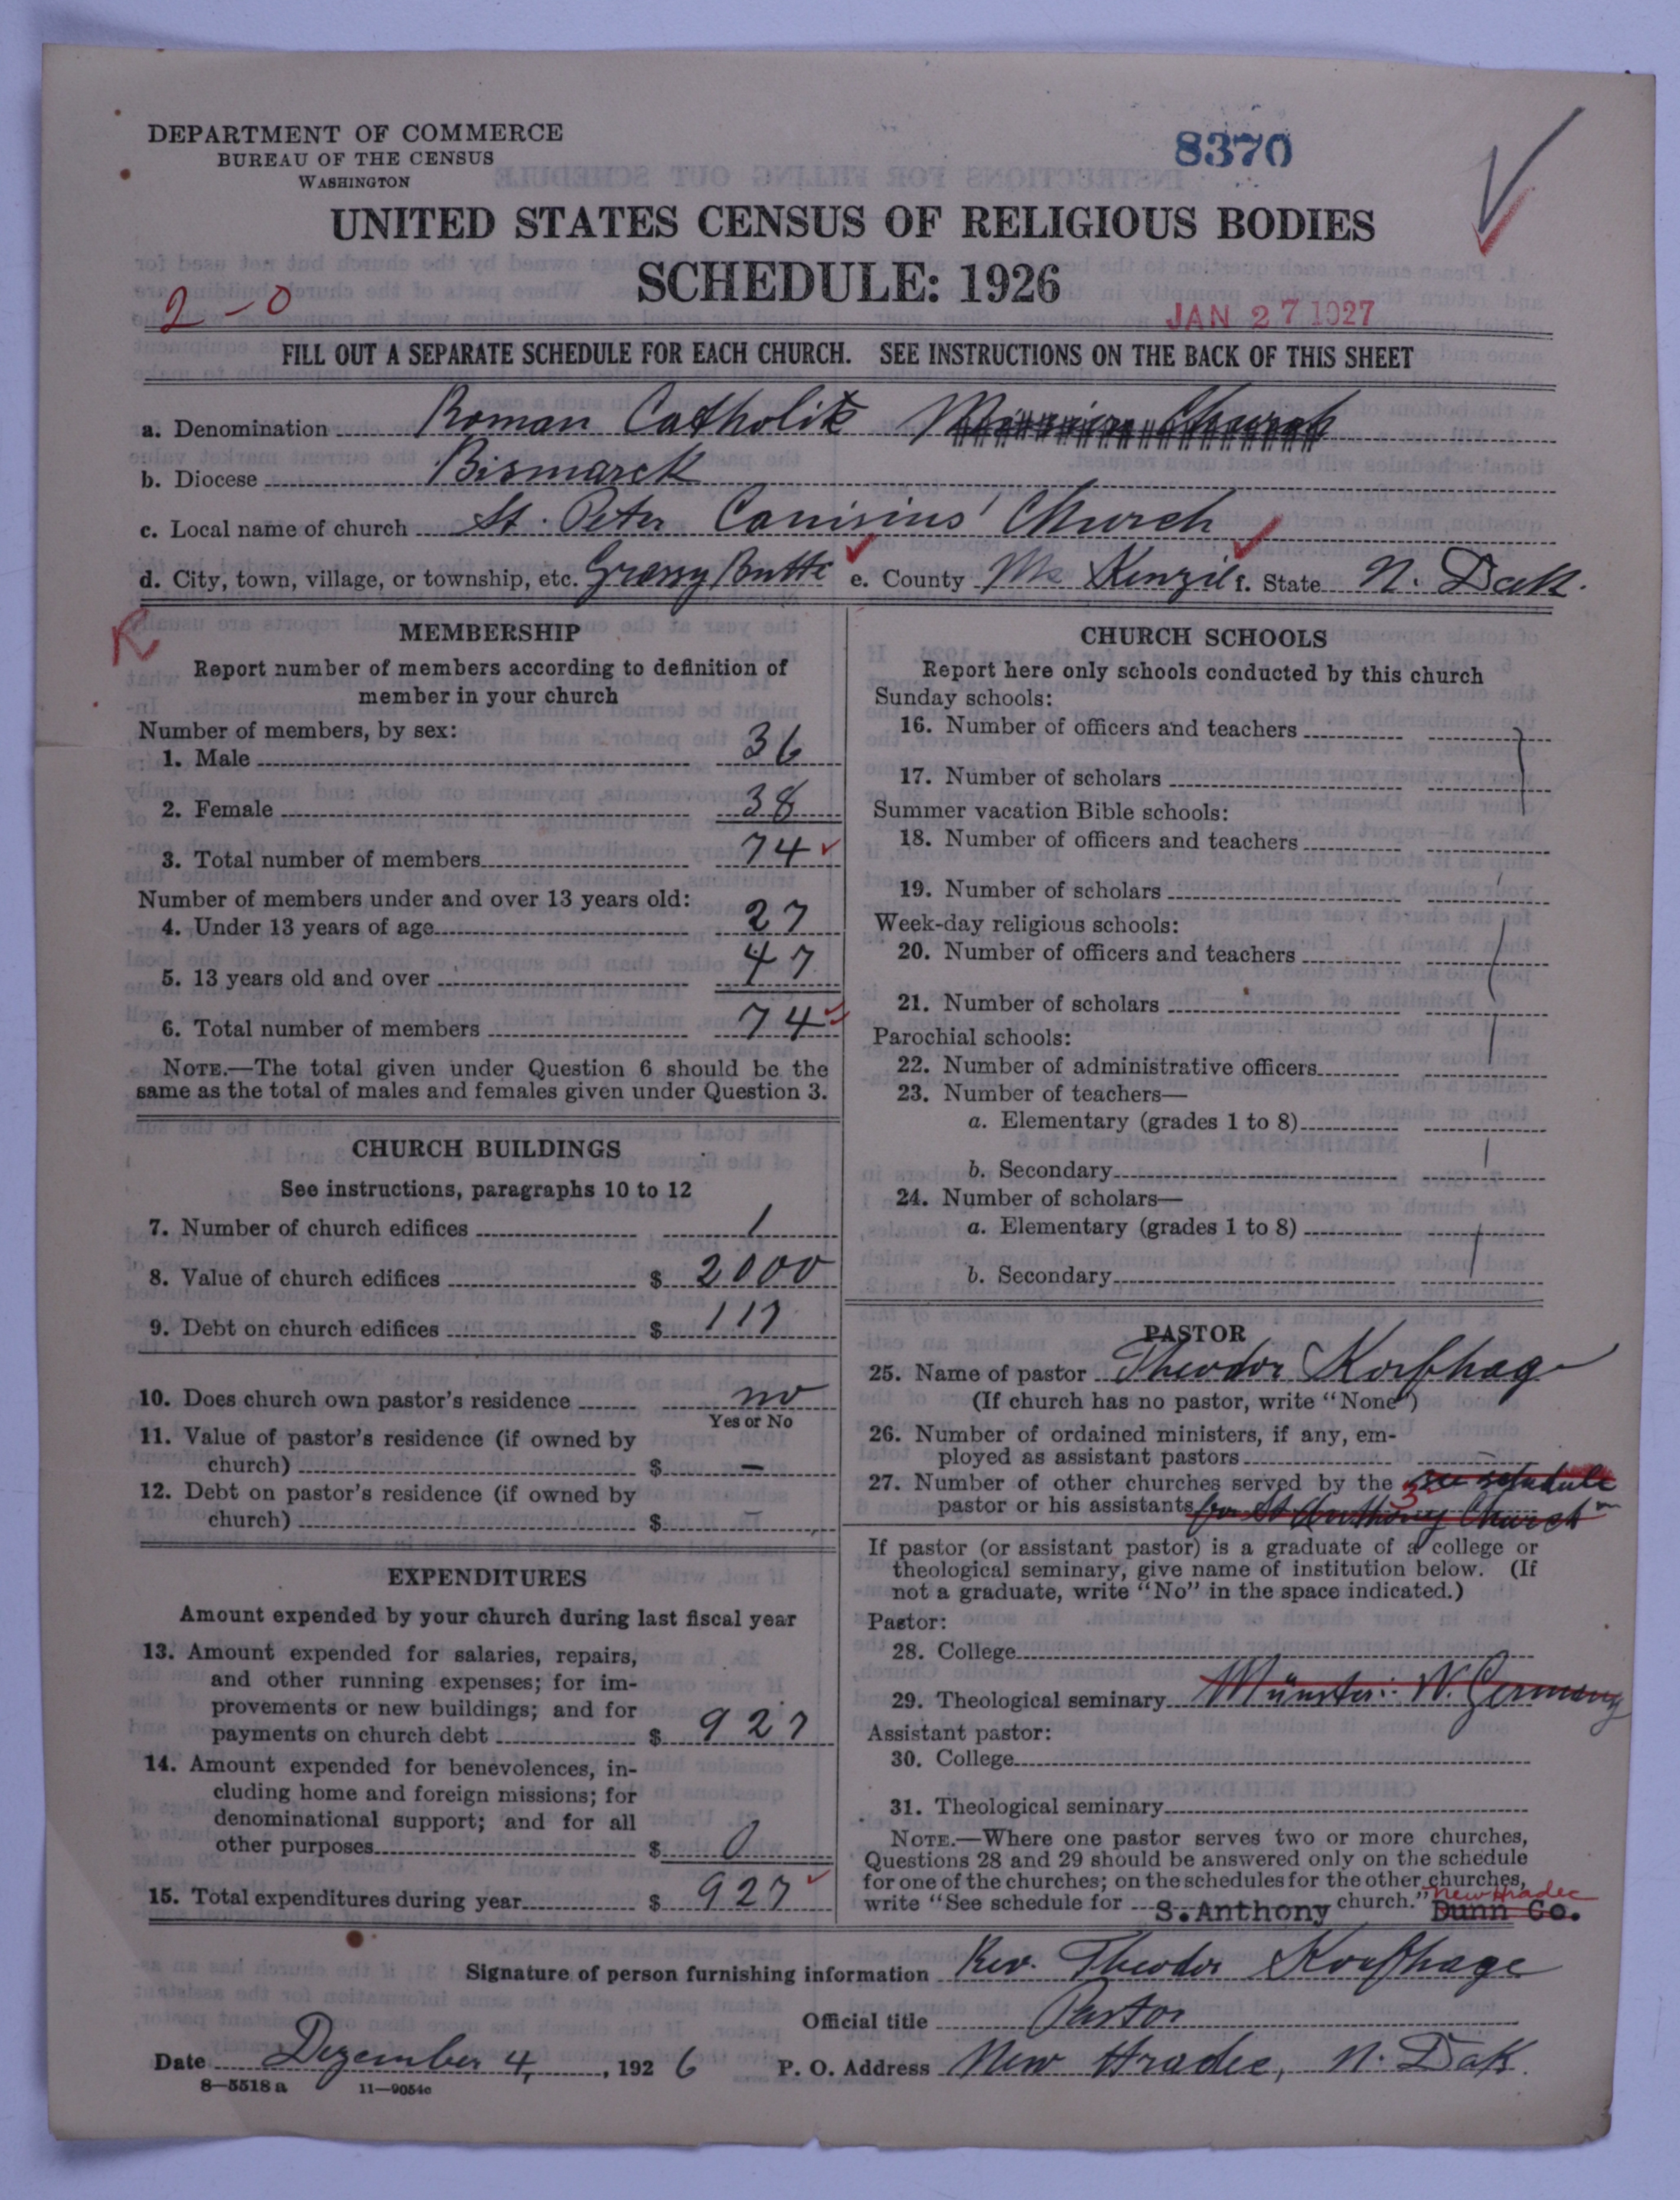 DEPARTMENT OF COMMERCE
BUREAU OF THE CENSUS
WASHINGTON
8370
UNITED STATES CENSUS OF RELIGIOUS BODIES
SCHEDULE: 1926
2-0
JAN 27 1927
FILL OUT A SEPARATE SCHEDULE FOR EACH CHURCH. SEE INSTRUCTIONS ON THE BACK OF THIS SHEET
a. Denomination Roman Catholik Mission Church
b. Diocese Bismarck
c. Local name of church St. Peter Canisius' Church
d. City, town, village, or township, etc. Grassy Butte e. County Mc Kenzil f. State N. Dak.
R
MEMBERSHIP
Report number of members according to definition of
member in your church
Number of members, by sex:
1. Male 36
2. Female 38
3. Total number of members 74
Number of members under and over 13 years old:
4. Under 13 years of age 27
5. 13 years old and over 47
6. Total number of members 74
NOTE.—The total given under Question 6 should be the
same as the total of males and females given under Question 3.
CHURCH BUILDINGS
See instructions, paragraphs 10 to 12
7. Number of church edifices 1
8. Value of church edifices $ 2000
9. Debt on church edifices $ 117
10. Does church own pastor's residence no
Yes or No
11. Value of pastor's residence (if owned by
church) $ —
12. Debt on pastor's residence (if owned by
church) $ —
EXPENDITURES
Amount expended by your church during last fiscal year
13. Amount expended for salaries, repairs,
and other running expenses; for im-
provements or new buildings; and for
payments on church debt $ 927
14. Amount expended for benevolences, in-
cluding home and foreign missions; for
denominational support; and for all
other purposes $ 0
15. Total expenditures during year $ 927
CHURCH SCHOOLS
Report here only schools conducted by this church
Sunday schools:
16. Number of officers and teachers
17. Number of scholars
Summer vacation Bible schools:
18. Number of officers and teachers
19. Number of scholars
Week-day religious schools:
20. Number of officers and teachers
21. Number of scholars
Parochial schools:
22. Number of administrative officers
23. Number of teachers—
a. Elementary (grades 1 to 8)
b. Secondary
24. Number of scholars—
a. Elementary (grades 1 to 8)
b. Secondary
PASTOR
25. Name of pastor Theodor Korfhage
(If church has no pastor, write "None")
26. Number of ordained ministers, if any, em-
ployed as assistant pastors —
27. Number of other churches served by the see schedule
pastor or his assistants 3 for St Anthony Church
If pastor (or assistant pastor) is a graduate of a college or
theological seminary, give name of institution below. (If
not a graduate, write "No" in the space indicated.)
Pastor:
28. College
29. Theological seminary Münster: W. Germany
Assistant pastor:
30. College
31. Theological seminary
NOTE.—Where one pastor serves two or more churches,
Questions 28 and 29 should be answered only on the schedule
for one of the churches; on the schedules for the other churches,
write "See schedule for S. Anthony church." New Hradec Dunn Co.
Signature of person furnishing information Rev. Theodor Korfhage
Official title Pastor
Date Dezember 4, 1926 P. O. Address New Hradec, N. Dak.
8—5518 a 11—9054c